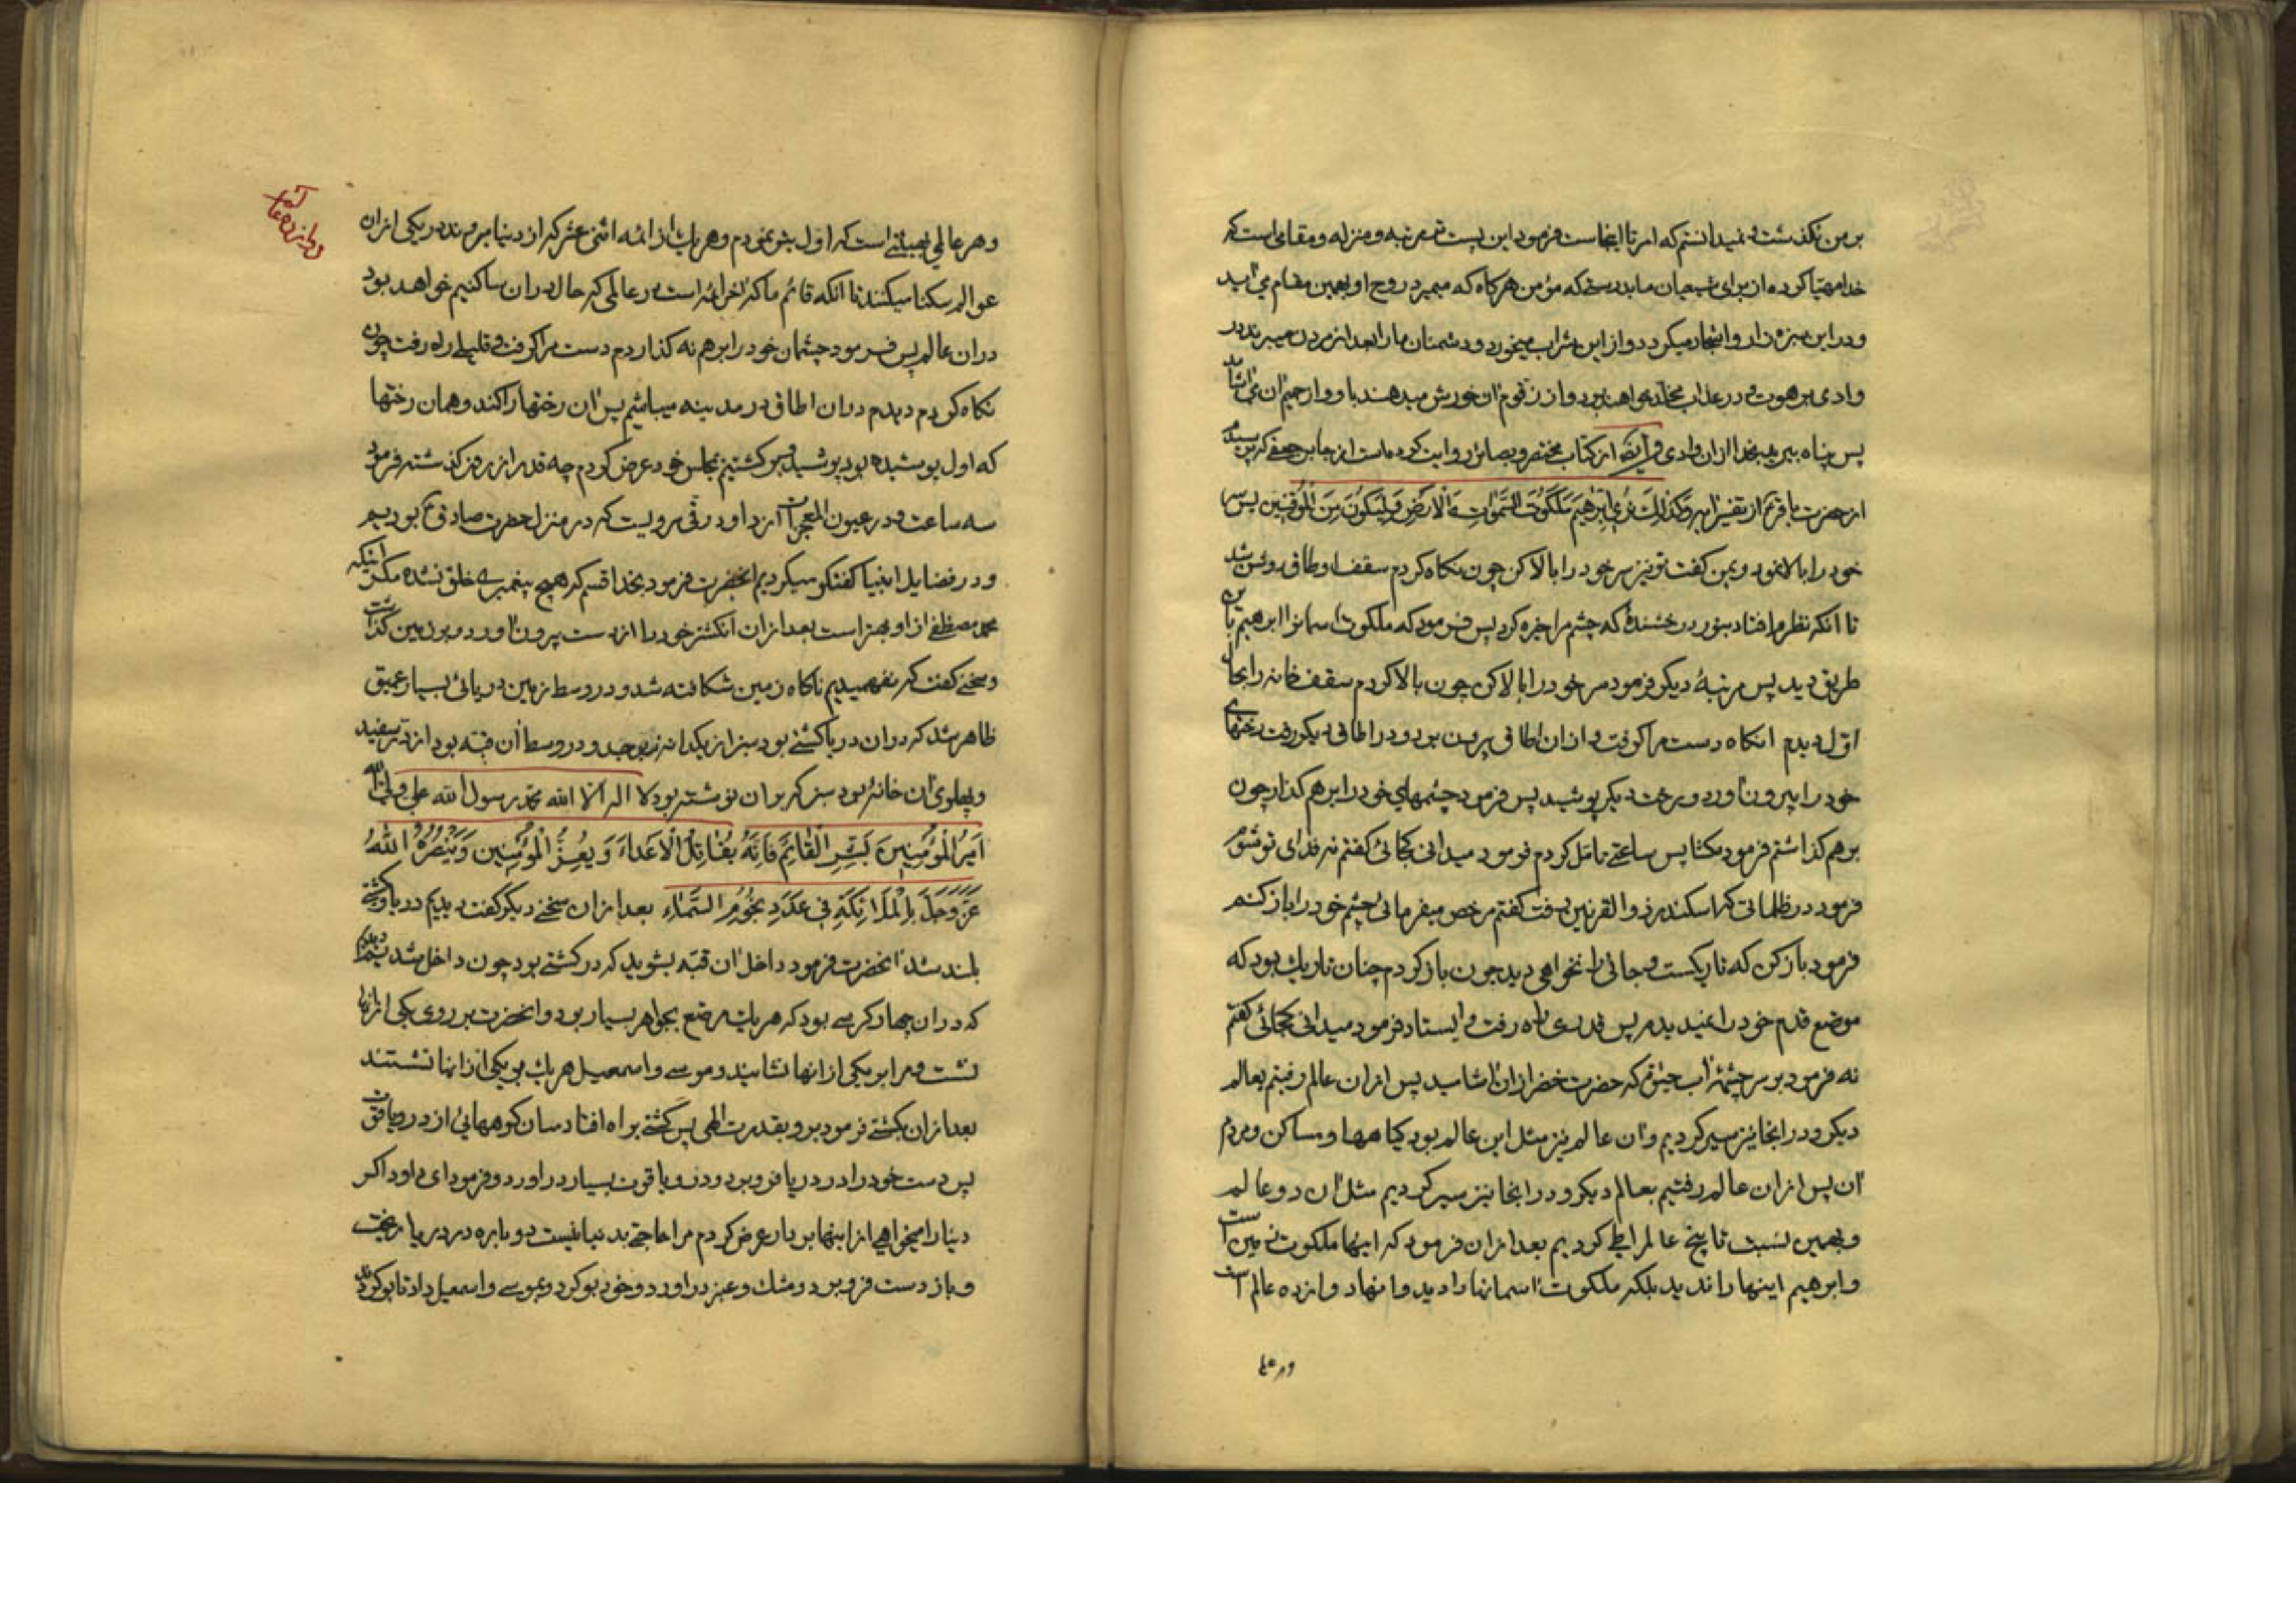 بر من نکذشت و نمیدانستم که امر تا اینجاست فرمود این پست تر مرتبه و منزله و مقامی است که
خدا مهیا کرده از برای شیعیان ما بدرستیکه مؤمن هرکاه که میمیرد روح او بهمین مقام می آید
و در این سبزه زار و اشجار میکردد و از این شراب میخورد و دشمنان ما را بعد از مردن میبرند در
وادی برهوت و در عذاب مخلد خواهند بود و از زقوم آن خورش میدهند باو و از حمیم آن می اشامند
پس پناه ببرید بخدا از ان وادی و ایضا از کتاب مختصر و بصائر روایت کرده است از جابر جعفی که پرسیدم
از حضرت باقر ع از تفسیر ایه وَکَذٰلِکَ نُرِی اِبْرٰهیمَ مَلَکُوتَ السَّمٰوٰاتِ وَالْاَرْضِ وَلِیَکُونَ مِنَ الْمُوقِنینَ پس سر
خود را بالا نمود و بمن کفت تو نیز سر خود را بالا کن چون نکاه کردم سقف اوطاق روشن شد
تا انکه نظرم افتاد بنور درخشندهٔ که چشم مرا خیره کرد پس فرمود که ملکوت اسمانرا ابرهیم باین
طریق دید پس مرتبهٔ دیکر فرمود سر خود را بالا کن چون بالا کردم سقف خانه را بحال
اول دیدم انکاه دست مرا کرفت و از ان اطاق بیرون برد و در اطاق دیکر رفت رختهای
خود را بیرون آورد و رخت دیکر پوشید پس فرمود چشمهای خود را بر هم کذار چون
بر هم کذاشتم فرمود مکشا پس ساعتی تامل کردم فرمود میدانی کجائی کفتم نه فدای تو شوم
فرمود در ظلماتی که اسکندر ذوالقرنین رفت کفتم مرخص میفرمائی چشم خود را باز کنم
فرمود باز کن که تاریکست و جائی را نخواهی دید چون باز کردم چنان تاریک بود که
موضع قدم خود را نمیدیدم پس قدری راه رفت و ایستاد فرمود میدانی کجائی کفتم
نه فرمود بر سر چشمهٔ آب حیوة که حضرت خضر از ان اشامید پس از ان عالم رفتیم بعالم
دیکر و در انجا نیز سیر کردیم و ان عالم نیز مثل این عالم بود کیاهها و مساکن و مردم
آن پس از ان عالم رفتیم بعالم دیکر و در انجا نیز سیر کردیم مثل ان دو عالم
و بهمین نسبت تا پنج عالم را طی کردیم بعد از ان فرمود که اینها ملکوت زمین است
و ابرهیم اینها را ندید بلکه ملکوت اسمانها را دید و اینها دوازده عالم است
و هر عالمی
و هر عالمی بهیئتی است که اول پیش نمودم و هر یک از ائمه اثنی عشر که از دنیا میروند در یکی از ان
عوالم سکنا میکنند تا انکه قائم ما که اخر ائمه است در عالمی که حال در ان ساکنیم خواهد بود
در ان عالم پس فرمود چشمان خود را بر هم نه کذاردم دست مرا کرفت و قلیلی راه رفت چون
نکاه کردم دیدم در ان اطاق در مدینه میباشیم پس ان رختها را کند و همان رختها
که اول پوشیده بود پوشید و برکشتیم بمجلس خود عرض کردم چه قدر از روز کذشته فرمود
سه ساعت و در عیون المعجزات از داود رقی مرویست که در منزل حضرت صادق ع بودیم
و در فضایل انبیا کفتکو میکردیم انحضرت فرمود بخدا قسم که هیچ پیغمبری خلق نشده مکر اینکه
محمد مصطفی از او بهتر است بعد از ان انکشتر خود را از دست بیرون اورد و بر زمین کذاشت
و سخنی کفت که نفهمیدیم ناکاه زمین شکافته شد و در وسط زمین دریائی بسیار عمیق
ظاهر شد که در ان دریا کشتی بود سبز از یکدانه زبرجد و در وسط ان قبه بود از در سفید
و پهلوی ان خانهٔ بود سبز که بر ان نوشته بود لا اله الا الله محمد رسول الله علی ولی الله
اَمیرُ الْمُؤْمِنینَ بَشِّرِ الْقائِمَ فَاِنَّهُ یُقاتِلُ الْاَعْداءَ وَ یُعِزُّ الْمُؤْمِنینَ وَیَنْصُرُهُ اللهُ
عَزَّوَجَلَّ بِالْمَلائِکَةِ فی عَدَدِ نُجُومِ السَّماءِ بعد از ان سخنی دیکر کفت دیدیم دریا و کشتی
بلند شد انحضرت فرمود داخل ان قبه بشوید که در کشتی بود چون داخل شدیم دیدیم
که در ان چهار کرسی بود که هر یک مرصع بجواهر بسیار بود و انحضرت بر روی یکی از انها
نشست و مرا بر یکی از انها نشانید و موسی و اسمعیل هر یک بر یکی از انها نشستند
بعد از ان بکشتی فرمود برو بقدرت الهی پس کشتی براه افتاد میان کوههائی از در و یاقوت
پس دست خود را در دریا فرو برد و در و یاقوت بسیار در اورد و فرمود ای داود اکر
دنیا را میخواهی از اینها بردار عرض کردم مرا حاجتی بدنیا نیست دوباره در دریا ریخت
و باز دست فرو برد و مشک و عنبر در اورد و خود بو کرد و بموسی و اسمعیل داد تا بو کردند